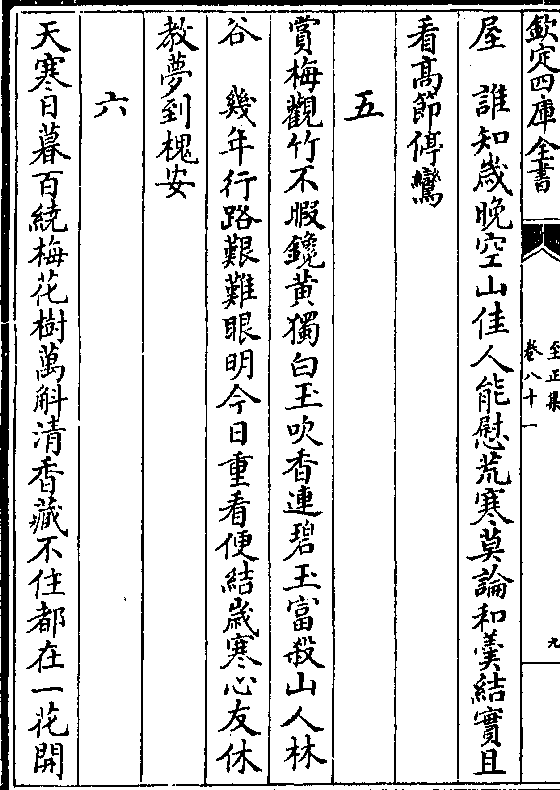 欽定四庫全書
至正集
卷八十一
九
屋　誰知歳晩空山佳人能慰荒寒莫論和羮結實且
看髙節停鸞
五
賞梅觀竹不暇鑱黄獨白玉吹香連碧玉富殺山人林
谷　幾年行路艱難眼明今日重看便結歳寒心友休
教夢到槐安
六
天寒日暮百繞梅花樹萬斛清香藏不住都在一花開